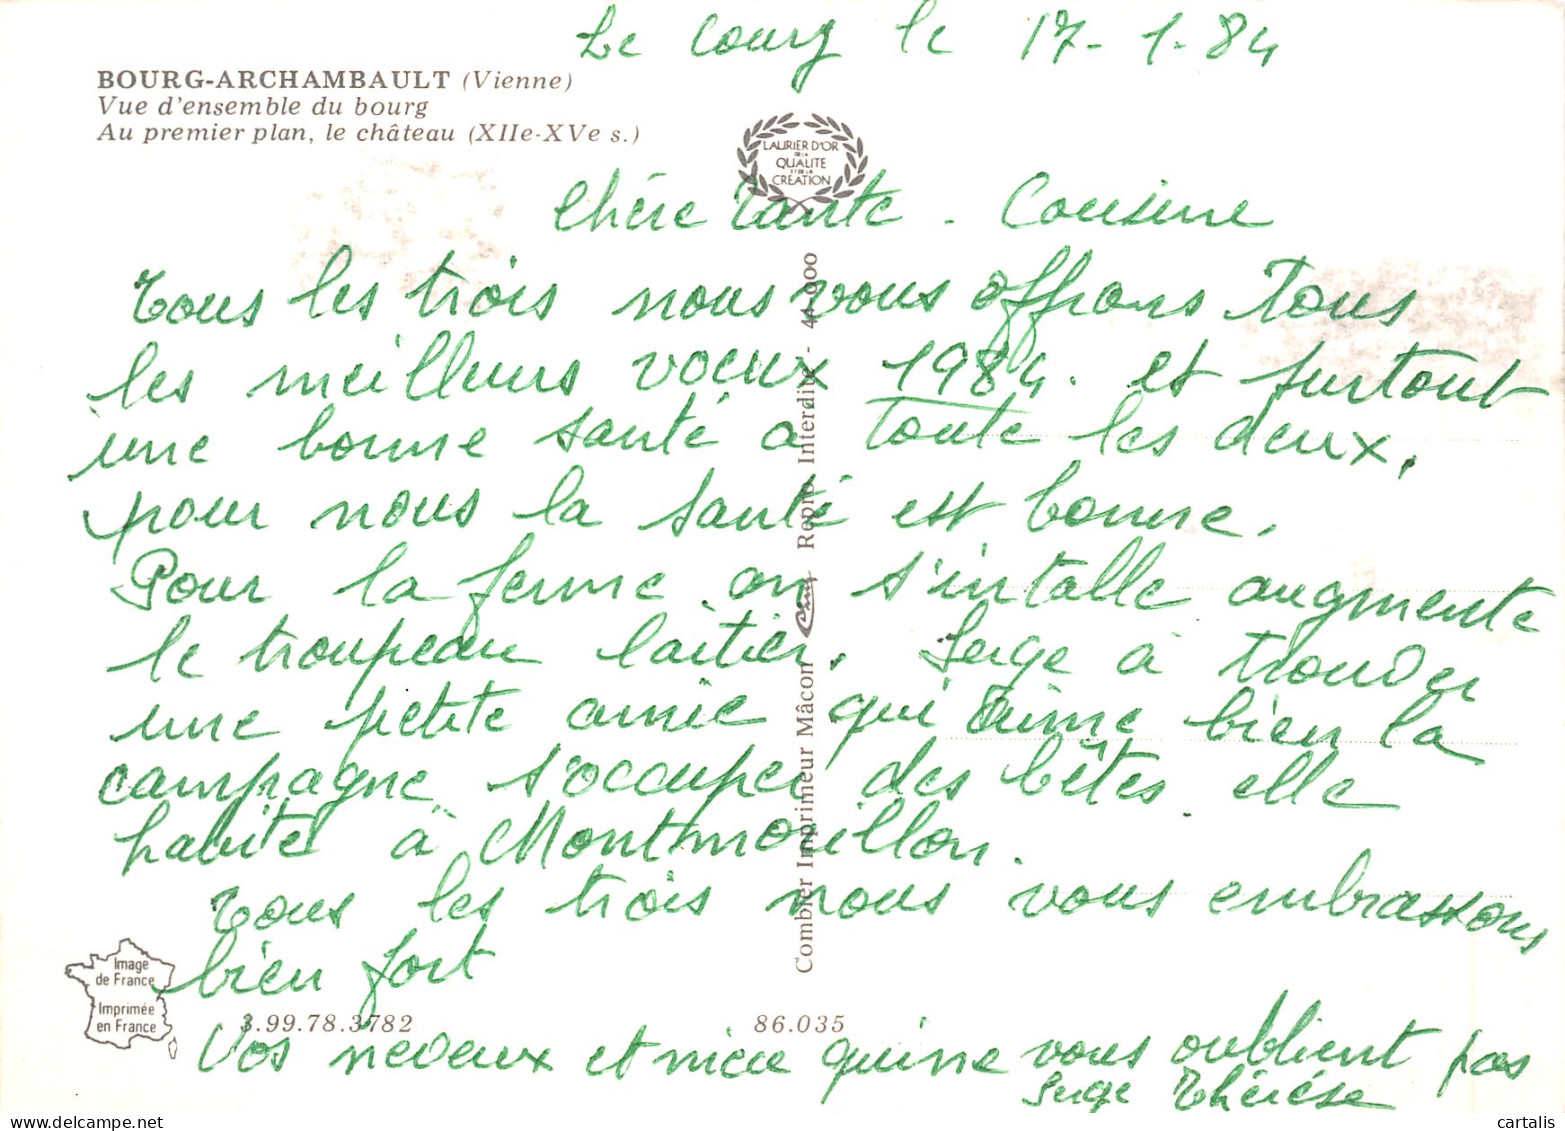 Le Courg le 17-1-84
BOURG-ARCHAMBAULT (Vienne)
Vue d'ensemble du bourg
Au premier plan, le château (XIIe-XVe s.)
LAURIER D'OR
DE LA
QUALITE
ET DE LA
CREATION
Chére Tante - Cousine
Tous les trois nous vous offrons Tous
les meilleurs voeux 1984. et surtout
une bonne santé a toute les deux.
pour nous la santé est bonne.
Pour la ferme on s'intalle augmente
le troupeau laitier. Serge à trouver
une petite amie qui aime bien la
campagne s'occuper des bêtes. elle
habite à Montmorillon.
Tous les trois nous vous embrassons
bien fort
Vos neveux et niece qui ne vous oublient pas
Serge Thérése
Combier Imprimeur Mâcon Cim Repro. Interdite - 44.000
Image
de France
Imprimée
en France
3.99.78.3782
86.035
cartalis